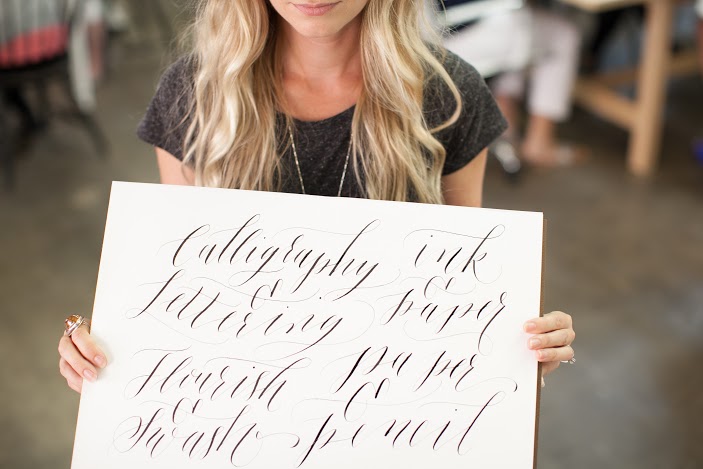 Calligraphy
&
Lettering
ink
&
paper
Flourish
&
Swash
paper
&
pencil